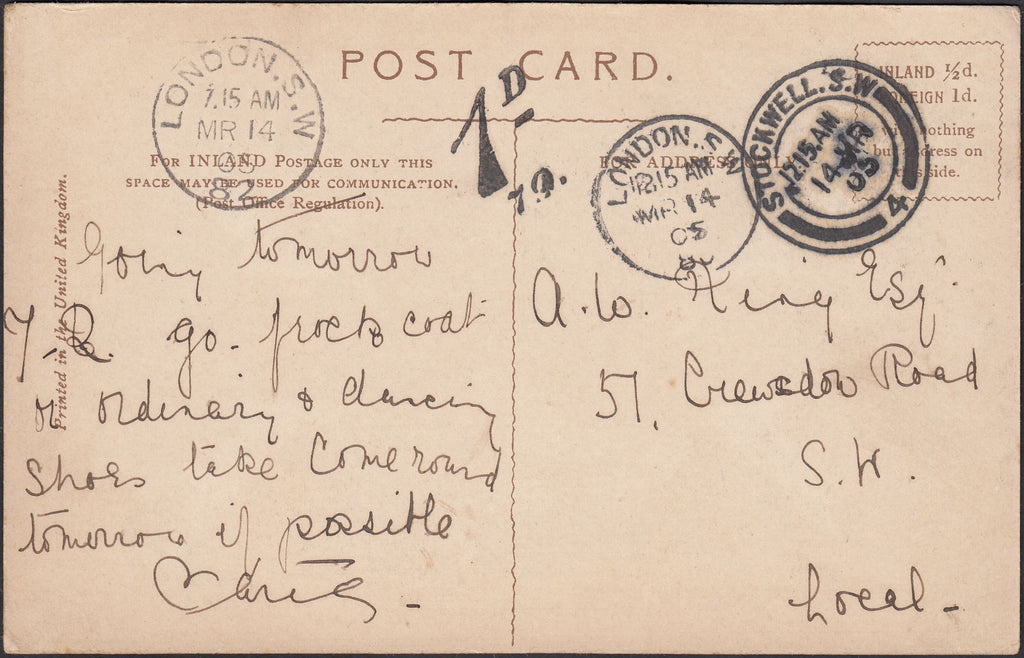 POST CARD.
LONDON. S.W
7.15 AM
MR 14
05
82
1D
T.O.
LONDON. S.W
12.15 AM
MR 14
05
STOCKWELL. S.W
12.15. AM
14. MR
05
4
INLAND ½d.
FOREIGN 1d.
nothing
but address on
this side.
FOR INLAND POSTAGE ONLY THIS
SPACE MAY BE USED FOR COMMUNICATION.
(Post Office Regulation).
FOR ADDRESS ONLY
Printed in the United Kingdom.
Going tomorrow
go. frock coat
or ordinary & dancing
shoes take Come round
tomorrow if possible
A. W. King Esq.
51, Crewsdon Road
S. W.
Local -